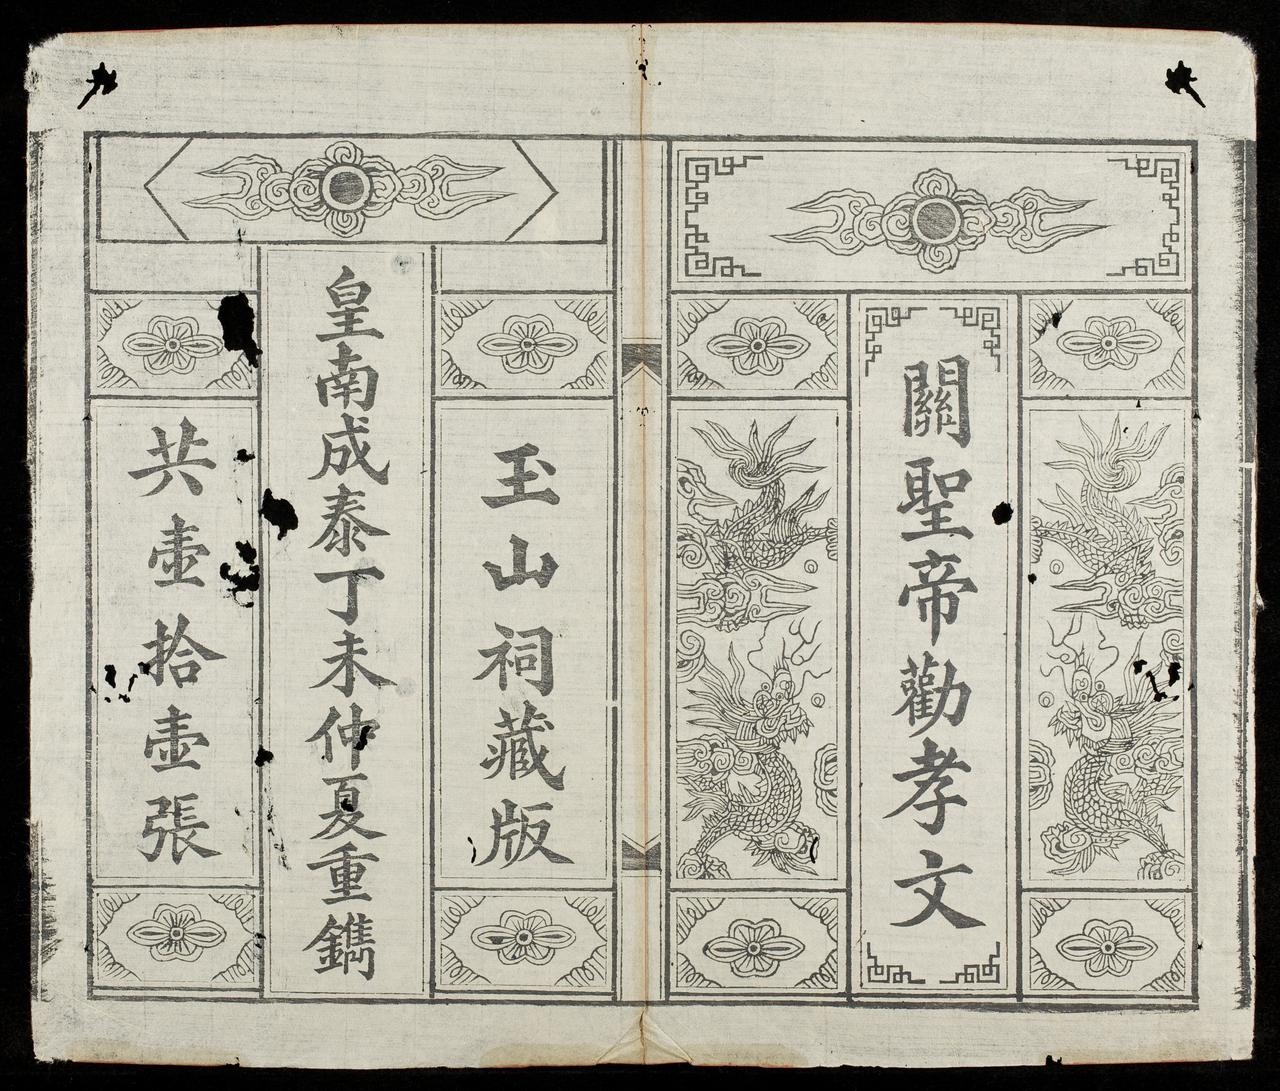 關聖帝勸孝文
玉山祠藏版
皇南成泰丁未仲夏重鐫
共壹拾壹張